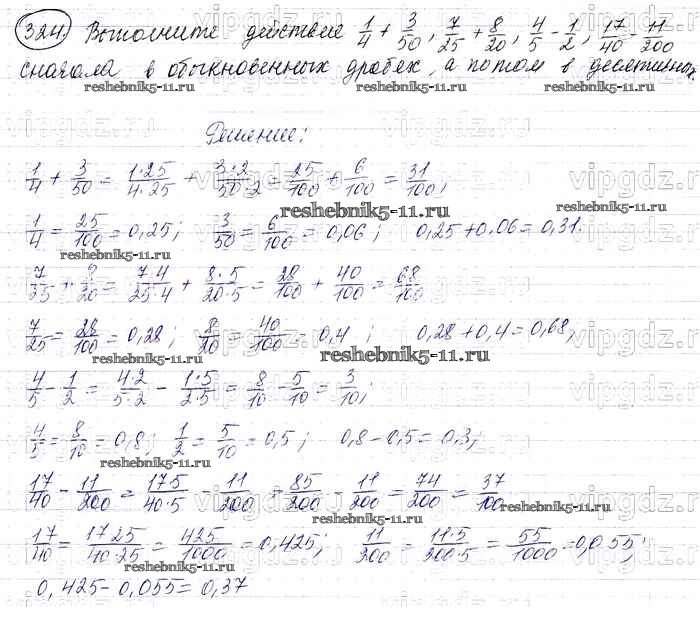 324. Выполните действие 1/4 + 3/50, 7/25 + 8/20, 4/5 - 1/2, 17/40 - 11/200
сначала в обыкновенных дробях, а потом в десятичных
reshebnik5-11.ru
reshebnik5-11.ru
Решение:
1/4 + 3/50 = 1·25/4·25 + 3·2/50·2 = 25/100 + 6/100 = 31/100;
reshebnik5-11.ru
1/4 = 25/100 = 0,25; 3/50 = 6/100 = 0,06; 0,25 + 0,06 = 0,31.
reshebnik5-11.ru
7/25 + 8/20 = 7·4/25·4 + 8·5/20·5 = 28/100 + 40/100 = 68/100
7/25 = 28/100 = 0,28; 8/20 = 40/100 = 0,4; 0,28 + 0,4 = 0,68;
reshebnik5-11.ru
reshebnik5-11.ru
4/5 - 1/2 = 4·2/5·2 - 1·5/2·5 = 8/10 - 5/10 = 3/10;
4/5 = 8/10 = 0,8; 1/2 = 5/10 = 0,5; 0,8 - 0,5 = 0,3;
reshebnik5-11.ru
17/40 - 11/200 = 17·5/40·5 - 11/200 = 85/200 - 11/200 = 74/200 = 37/100
reshebnik5-11.ru
reshebnik5-11.ru
17/40 = 17·25/40·25 = 425/1000 = 0,425; 11/200 = 11·5/200·5 = 55/1000 = 0,055;
reshebnik5-11.ru
0,425 - 0,055 = 0,37
vipgdz.ru